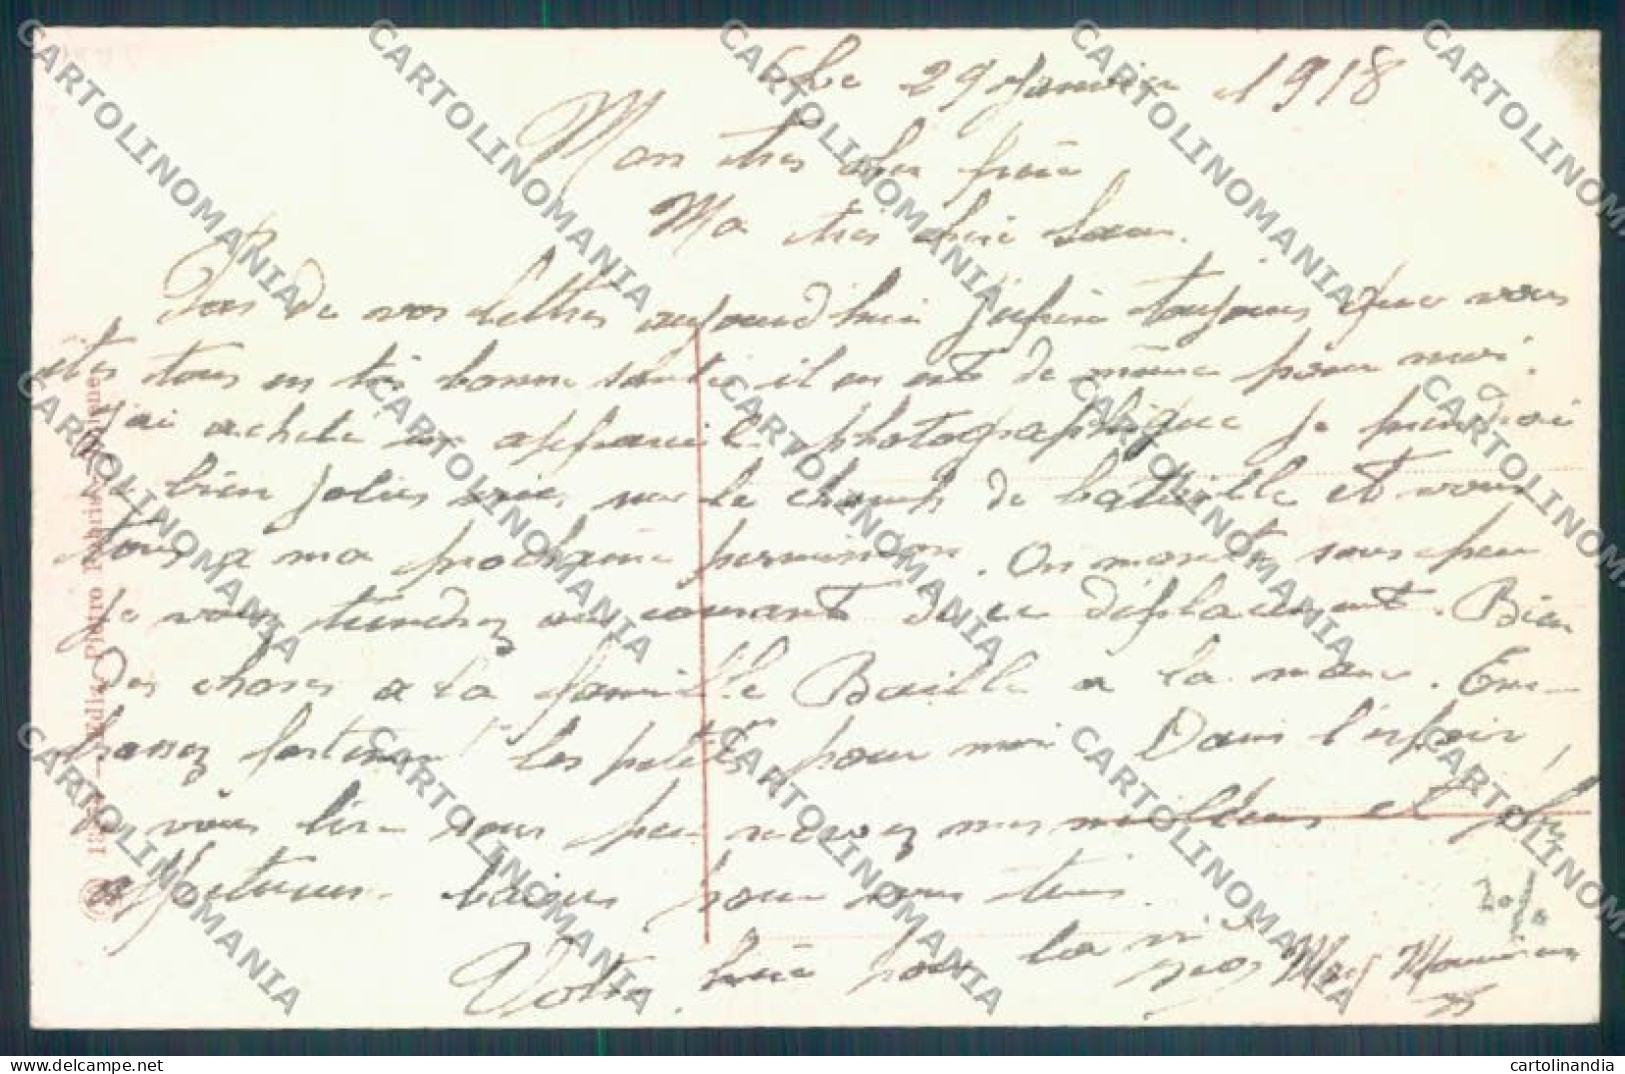 Le 29 Janvier 1918
Mon tres cher frère
Ma tres chère Sœur.
Pas de vos lettres aujourd'hui j'espère toujours que vous
êtes tous en très bonne santé il en est de même pour moi.
J'ai acheté un appareil photographique je prendrai
de bien jolies vues sur le champ de bataille et vous
tous a ma prochaine permission. On monte sous peu
je vous tiendrez au courant de ce déplacement. Bien
Des choses a la famille Baille a la mère. Em-
brassez fortement les petits pour moi Dans l'espoir
de vous lire sous peu recevez mes meilleurs et plus
affectueux baisers pour vous tous.
Votre frère pour la vie
20/10
Ediz. Pietro Fabris - Udine
CARTOLINOMANIA
delcampe.net
cartolinandia